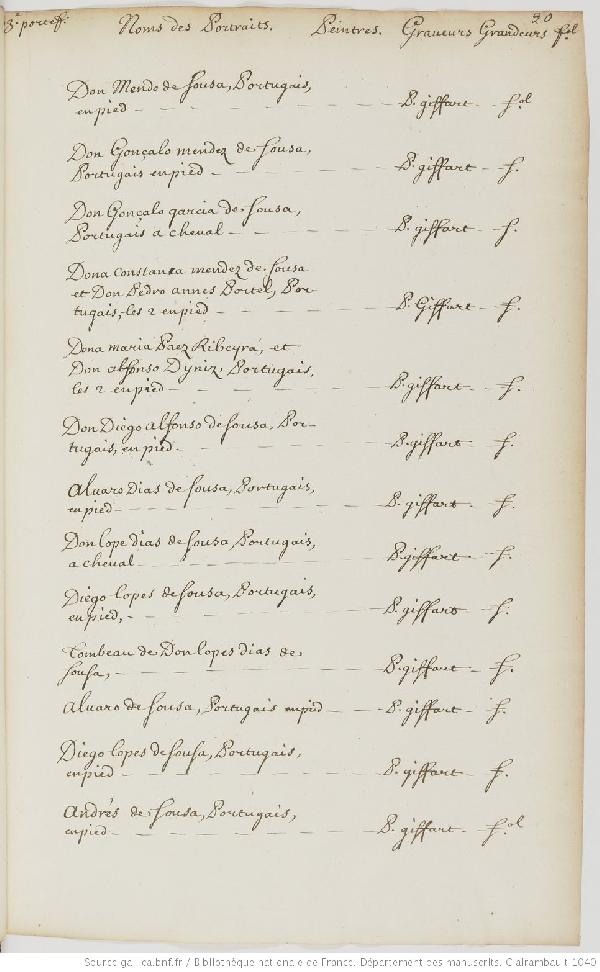 90
3.e portef. Noms des Portraits. Peintres. Graveurs Grandeurs f.ol
Don Mendo de Sousa, Portugais,
en pied — P. giffart — f.ol
Don Gonçalo mendez de Sousa,
Portugais en pied — P. giffart — f.
Don Gonçalo garcia de Sousa,
Portugais a cheval — P. giffart — f.
Dona constanza mendez de Sousa
et Don Pedro annes Portel, Por-
tugais, les 2 en pied — P. Giffart — f.
Dona maria Paez Ribeyra, et
Don alfonso Dyniz, Portugais,
les 2 en pied — P. giffart — f.
Don Diego alfonso de Sousa, Por-
tugais, en pied. — P. giffart — f.
Alvaro Dias de Sousa, Portugais,
en pied — P. giffart — f.
Don lope dias de Sousa, Portugais,
a cheval — P. giffart — f.
Diego lopes de Sousa, Portugais,
en pied, — P. giffart — f.
Tombeau de Don lopes dias de
Sousa, — P. giffart — f.
Alvaro de Sousa, Portugais en pied — P. giffart — f.
Diego lopes de Sousa, Portugais,
en pied — P. giffart — f.
Andrés de Sousa, Portugais,
en pied — P. giffart — f.ol
Source gallica.bnf.fr / Bibliothèque nationale de France. Département des manuscrits. Clairambault 1040